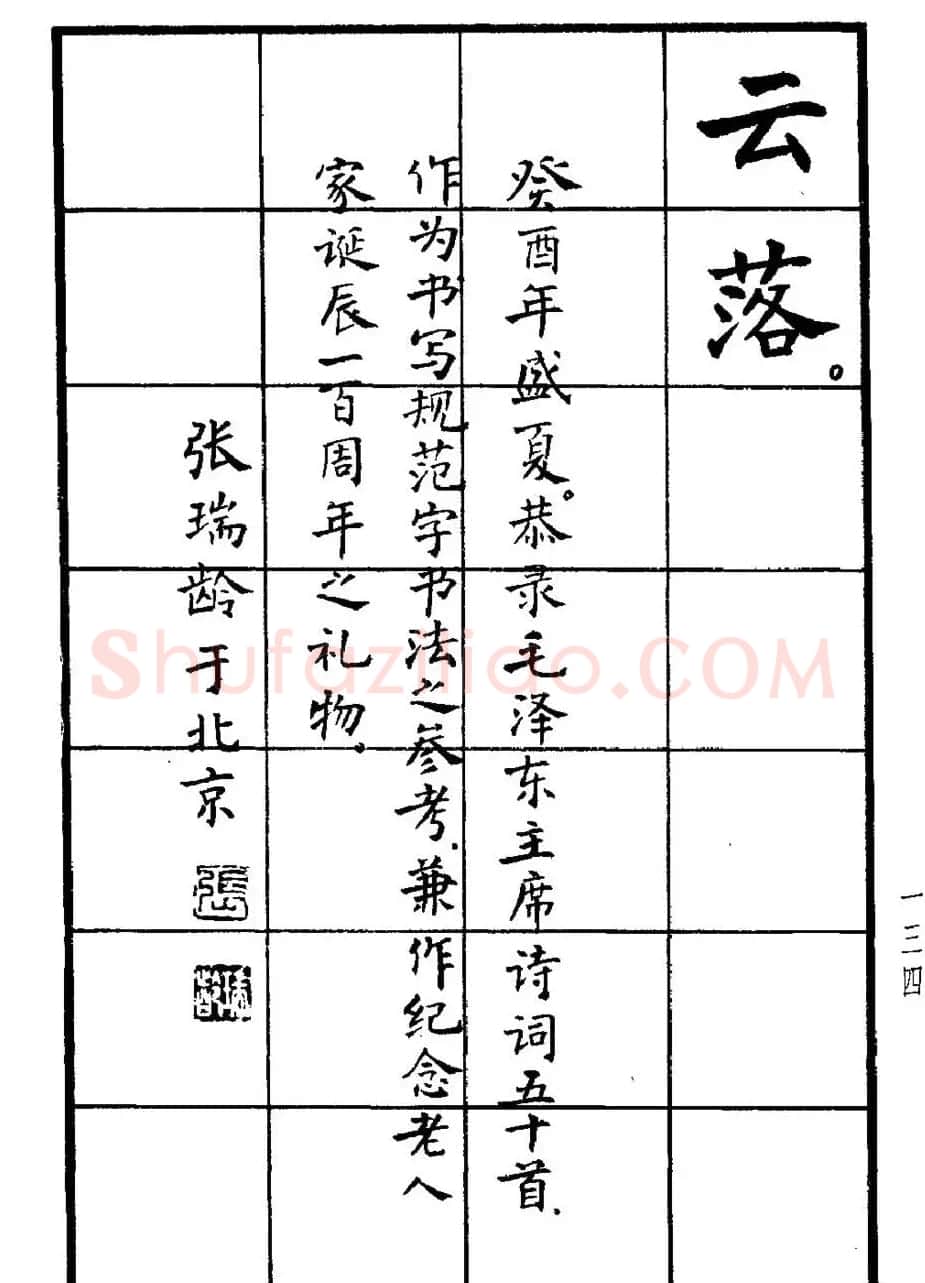 云落。
癸酉年盛夏。恭录毛泽东主席诗词五十首、
作为书写规范字书法之参考、兼作纪念老人
家诞辰一百周年之礼物。
张瑞龄于北京
張
瑞龄
一三四
Shufaziliao.COM